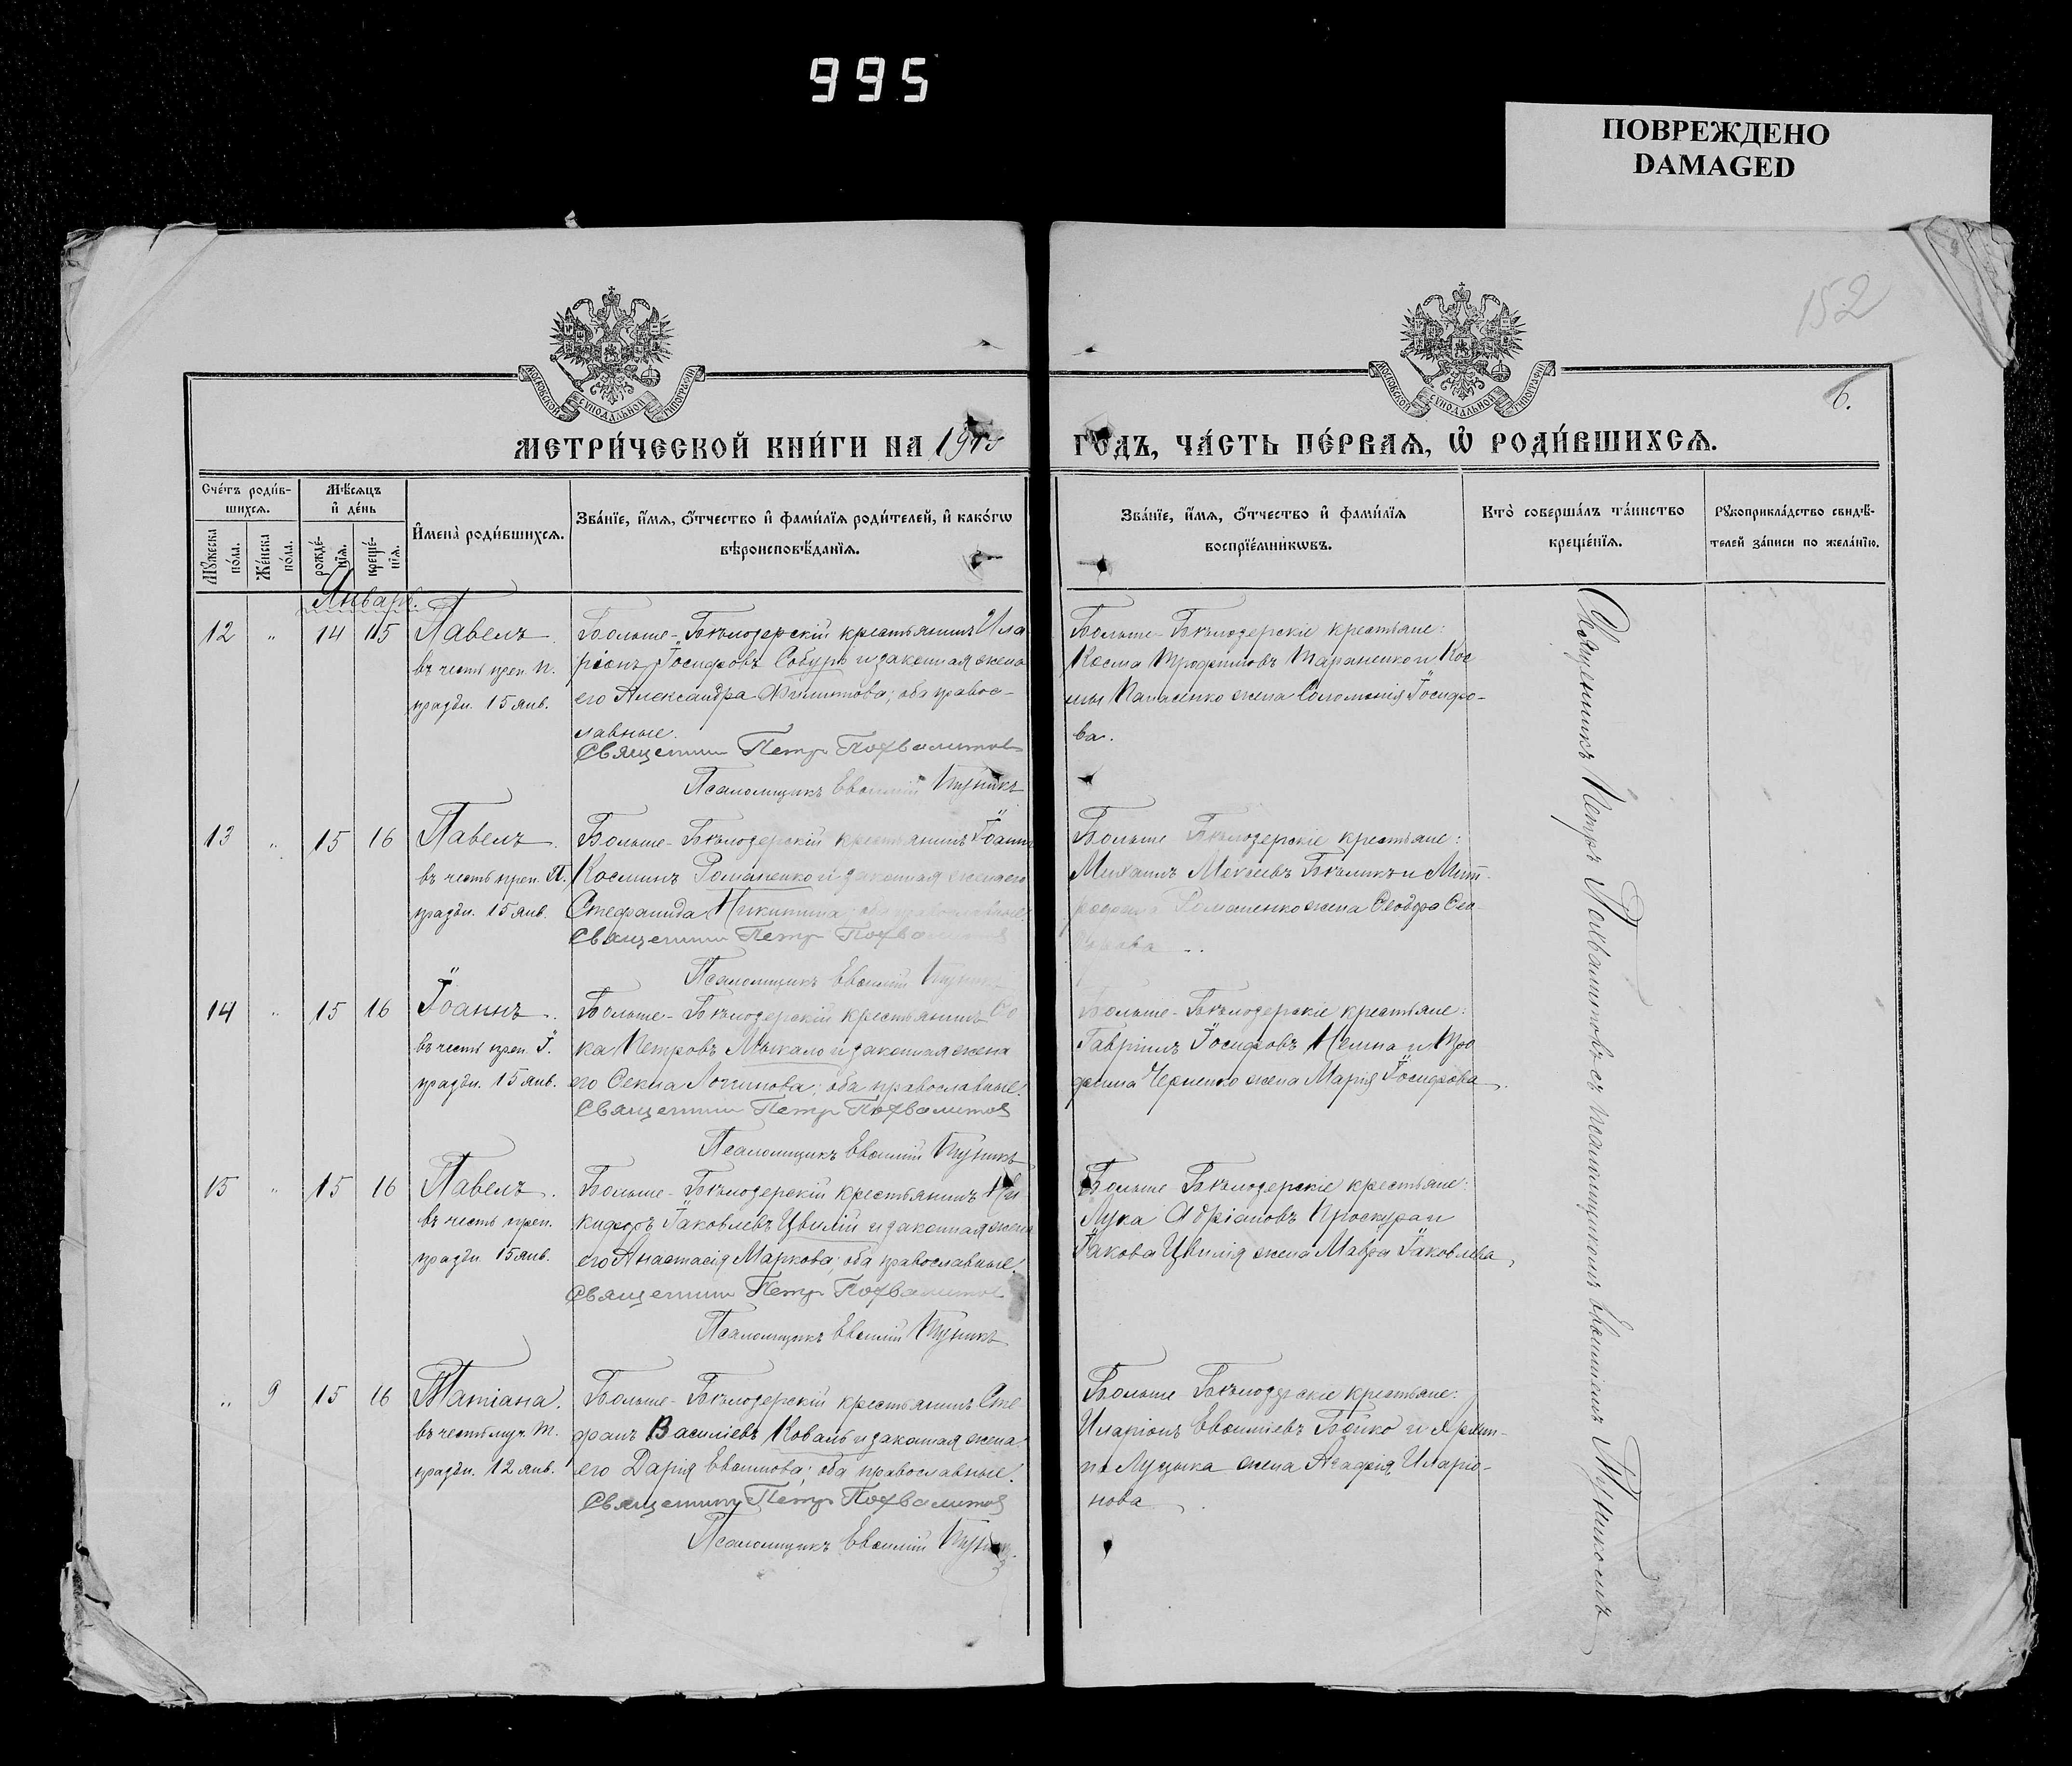 995
ПОВРЕЖДЕНО
DAMAGED
152
6.
МОСКОВСКОЙ СУНОДАЛЬНОЙ ТИПОГРАФІИ
МОСКОВСКОЙ СУНОДАЛЬНОЙ ТИПОГРАФІИ
МЕТРИ́ЧЕСКОЙ КНИ́ГИ НА
ГОДЪ, ЧА́СТЬ ПЕ́РВАѦ, Ѡ҆ РОДИ́ВШИХСѦ.
Сче́тъ роди́в-
шихсѧ.
Мꙋ́жеска по́ла.
Же́нска по́ла.
Мѣ́сѧцъ
и҆ де́нь
рожде́-нїѧ.
креще́-нїѧ.
И҆мена̀ роди́вшихсѧ.
Зва́нїе, и҆́мѧ, ѻ҆́тчество и҆ фами́лїѧ роди́телей, и҆ како́гѡ
вѣроисповѣ́данїѧ.
Зва́нїе, и҆́мѧ, ѻ҆́тчество и҆ фами́лїѧ
воспрїе́мникѡвъ.
Кто̀ соверша́лъ та́инство
креще́нїѧ.
Рꙋкоприкла́дство свидѣ́-
телей за́писи по жела́нїю.
Январь.
12 " 14 15 Павелъ.
въ честь преп. П.
праздн. 15 янв.
Больше-Бѣлозерскій крестьянинъ Ила
ріонъ Іосифовъ Собуръ и законная жена
его Александра Филиппова; оба правос-
лавные.
Священник Петр Похвалитов
Псаломщикъ Евѳимій Пуникъ
Больше-Бѣлозерскіе крестьяне:
Косма Трофимовъ Тараненко и Кос
мы Панасенко жена Соломонія Іосифо-
ва.
13 " 15 16 Павелъ.
въ честь преп. П.
праздн. 15 янв.
Больше-Бѣлозерскій крестьянинъ Іоаннъ
Косминъ Романенко и законная жена его
Стефанида Никитина; оба православные.
Священник Петр Похвалитов
Псаломщикъ Евѳимій Пуникъ
Больше Бѣлозерскіе крестьяне:
Михаилъ Моѵсеевъ Бѣликъ и Мит-
рофана Романенко жена Ѳеодора
14 " 15 16 Іоаннъ.
въ честь преп. І.
праздн. 15 янв.
Больше-Бѣлозерскій крестьянинъ
ка Петровъ Мыкало и законная жена
его Ѳекла Логгинова; оба православные.
Священник Петр Похвалитов
Псаломщикъ Евѳимій Пуникъ
Больше-Бѣлозерскіе крестьяне:
Гавріилъ Іосифовъ Шешна и Тро
фима Черненко жена Марія Іосифова.
15 " 15 16 Павелъ.
въ честь преп.
праздн. 15 янв.
Больше-Бѣлозерскій крестьянинъ Ни
кифоръ Іаковлевъ Цвилій и законная жена
его Анастасія Маркова; оба православные.
Священник Петр Похвалитов
Псаломщикъ Евѳимій Пуникъ
Больше Бѣлозерскіе крестьяне:
Лука Адріановъ Проскура и
Іакова Цвилія жена Мавра Іаковлева.
" 9 15 16 Татіана.
въ честь муч. Т.
праздн. 12 янв.
Больше-Бѣлозерскій крестьянинъ Сте
фанъ Василіевъ Коваль и законная жена
его Дарія Евѳимова; оба православные.
Священник Петр Похвалитов
Псаломщикъ Евѳимій Пуникъ
Больше Бѣлозерскіе крестьяне:
Иларіонъ Евѳиміевъ Бойко и
Луцыка жена Агафія Иларіо-
нова
Священникъ Петръ Похвалитовъ съ псаломщикомъ Евѳиміемъ Пуникомъ